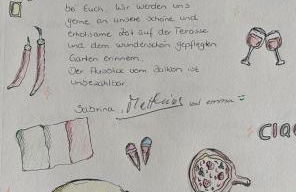 bei Euch. Wir werden uns
gerne an unsere schöne und
erholsame Zeit auf der Terasse
und dem wunderschön gepflegten
Garten erinnern.
Der Ausblick vom Balkon ist
unbezahlbar
Sabrina, Mathias und emma
Ciao